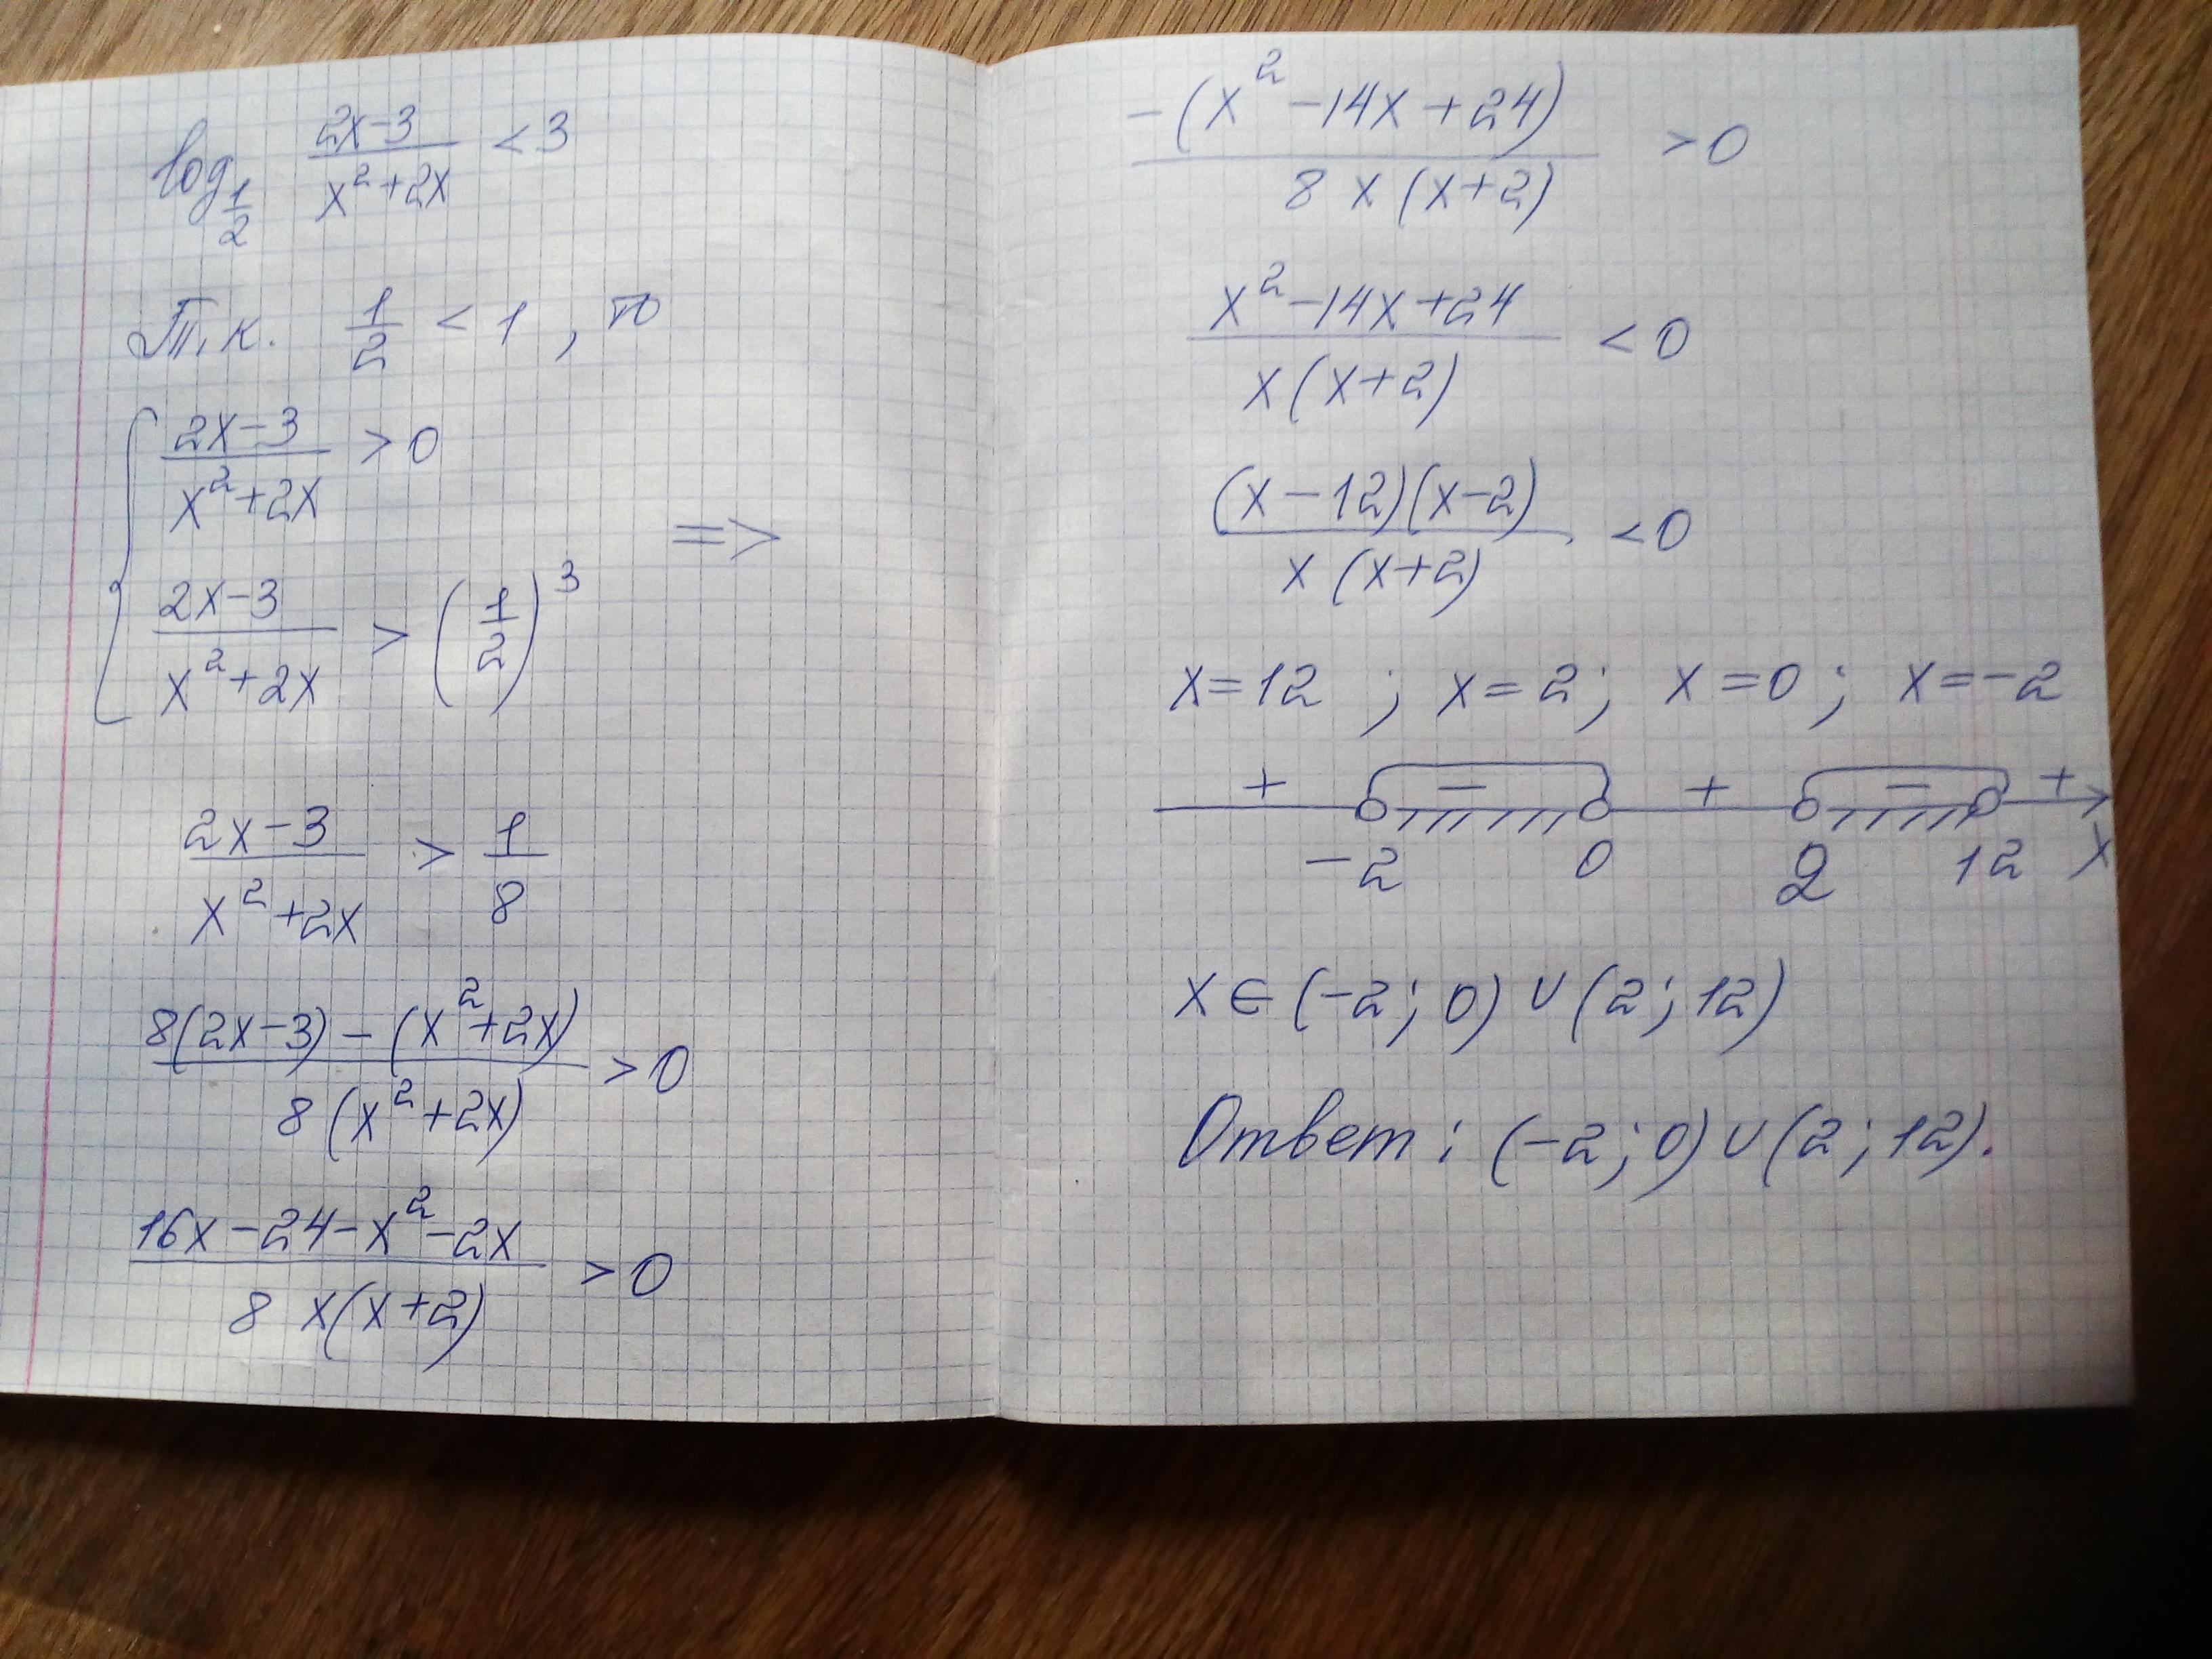 log_{1/2} (2x-3)/(x²+2x) < 3
Т.к. 1/2 < 1, то
{ (2x-3)/(x²+2x) > 0
(2x-3)/(x²+2x) > (1/2)³ =>
(2x-3)/(x²+2x) > 1/8
(8(2x-3)-(x²+2x))/(8(x²+2x)) > 0
(16x-24-x²-2x)/(8x(x+2)) > 0
(-(x²-14x+24))/(8x(x+2)) > 0
(x²-14x+24)/(x(x+2)) < 0
((x-12)(x-2))/(x(x+2)) < 0
x=12; x=2; x=0; x=-2
+ - + - +
-2 0 2 12 x
x ∈ (-2; 0) ∪ (2; 12)
Ответ: (-2; 0) ∪ (2; 12).